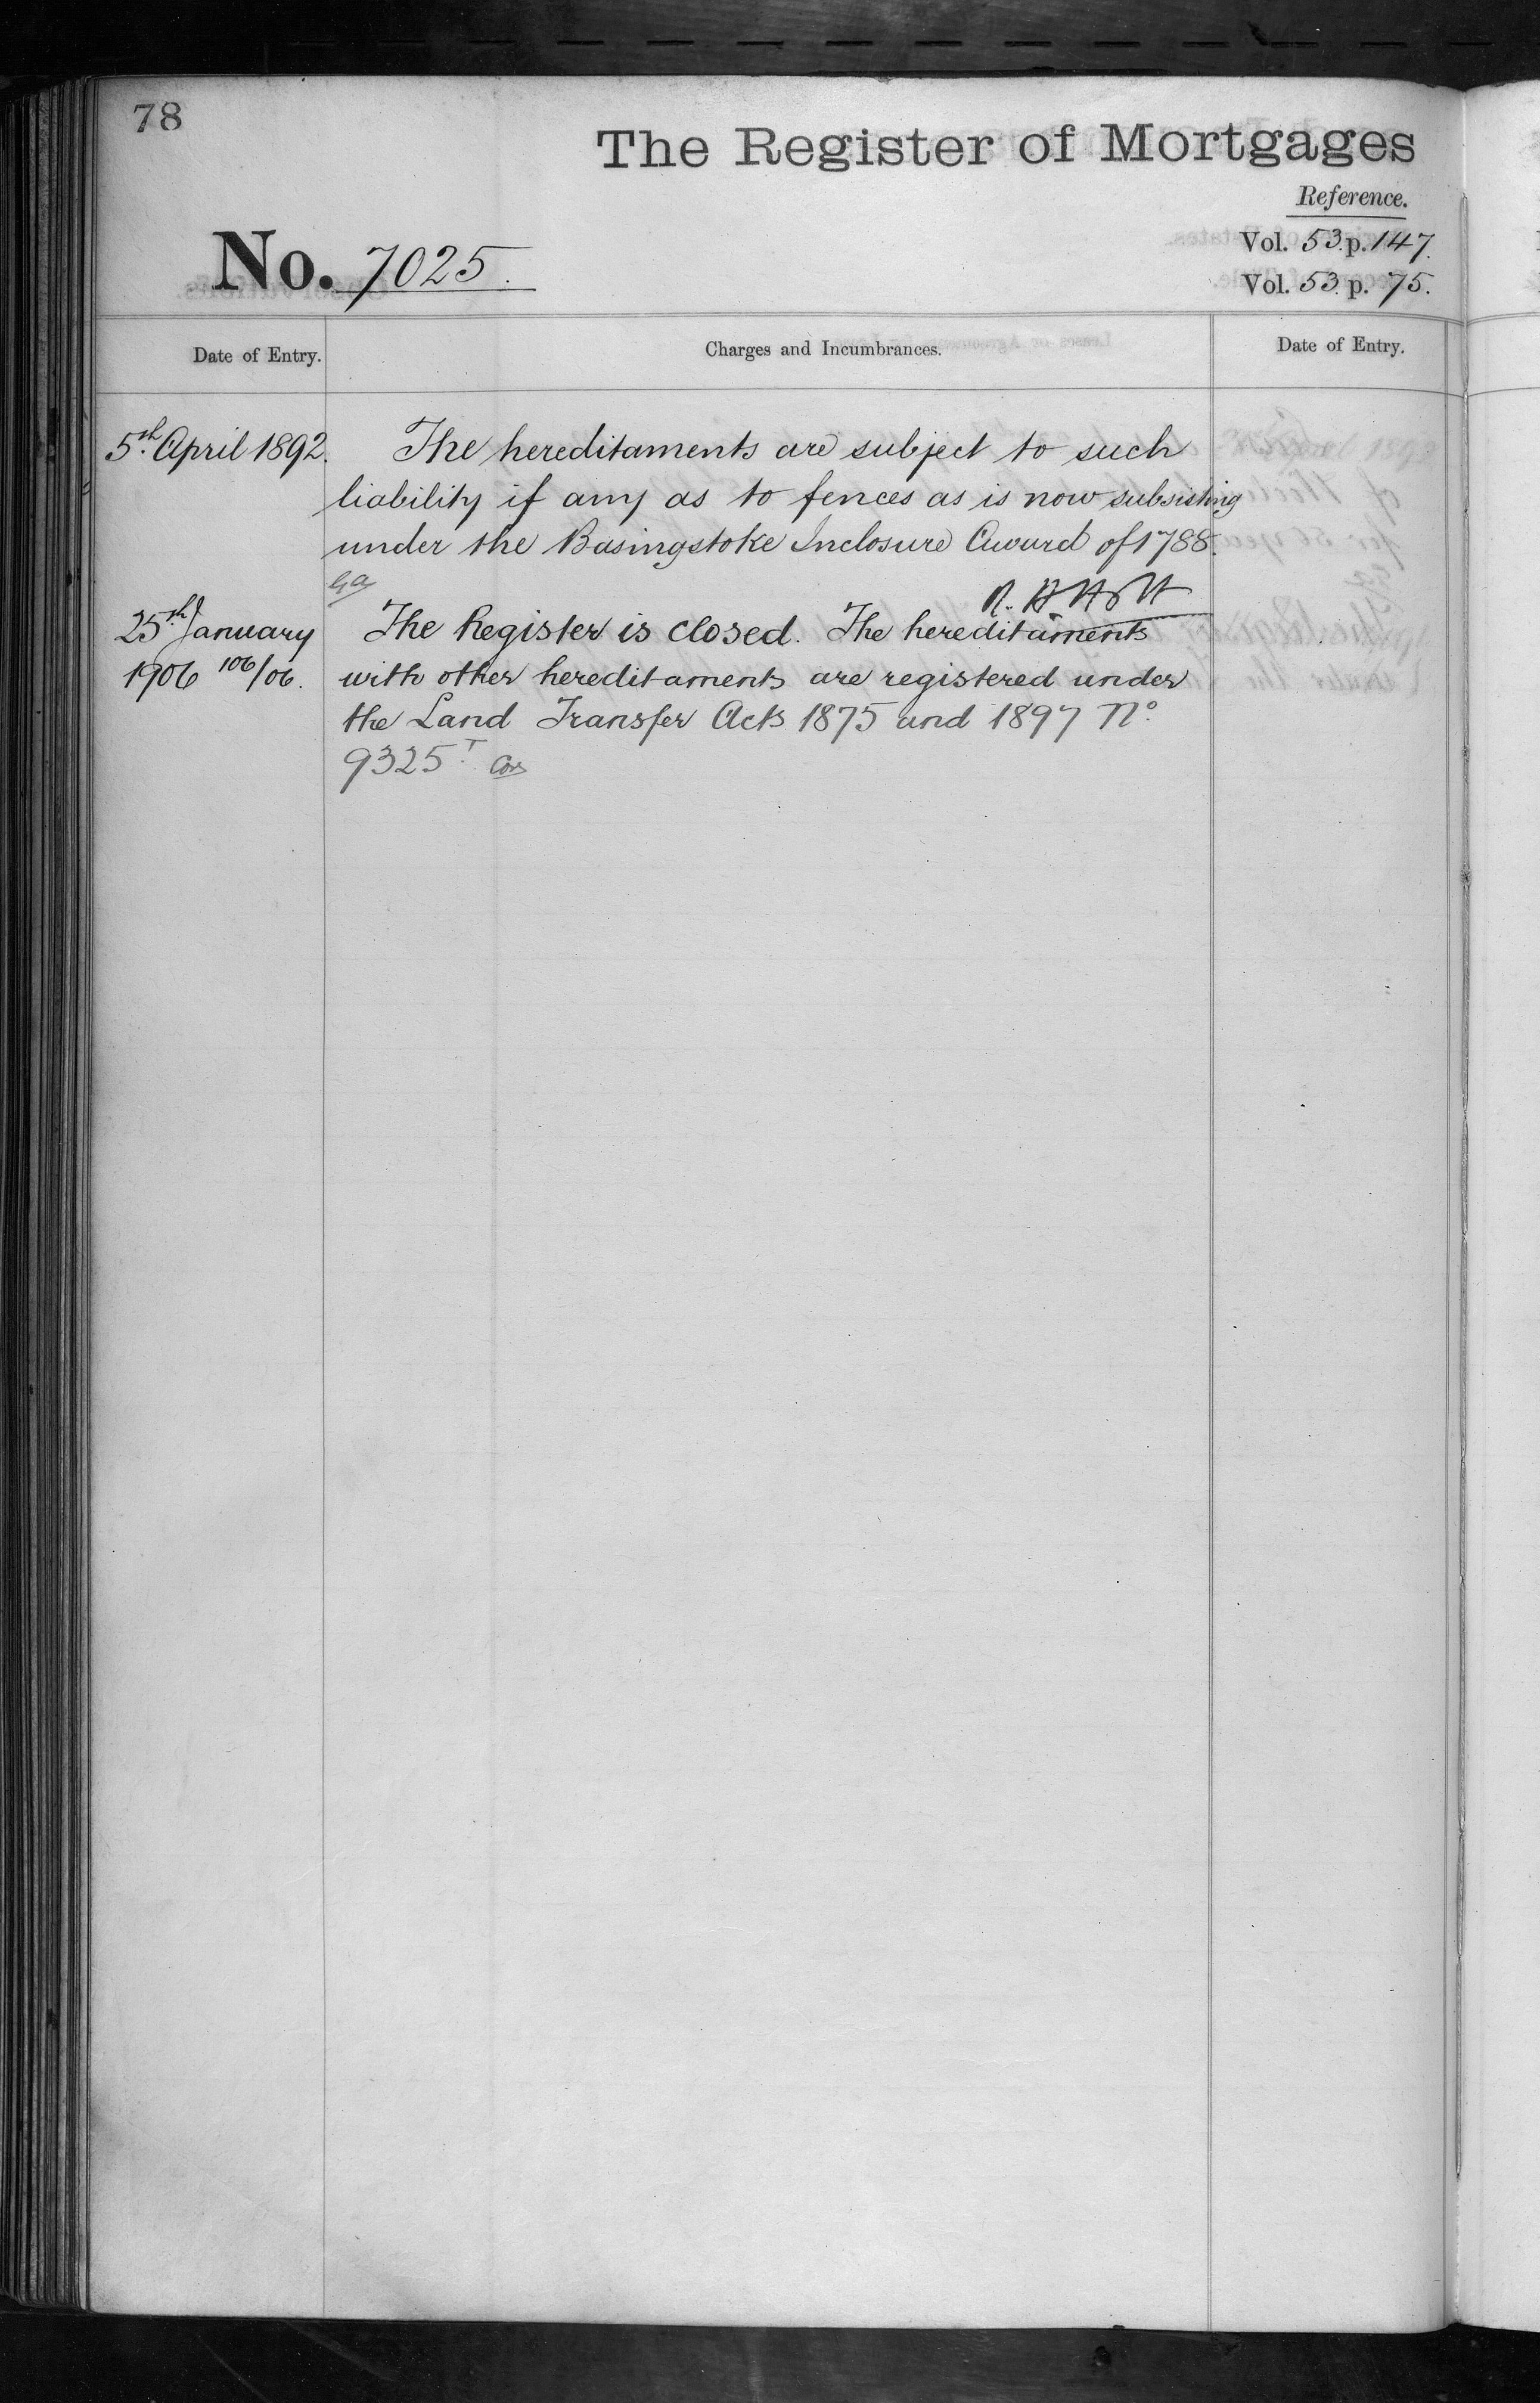 78
The Register of Mortgages
Reference.
No. 7025.
Vol. 53. p. 147.
Vol. 53. p. 75.
Date of Entry.
Charges and Incumbrances.
Date of Entry.
5th April 1892.
The hereditaments are subject to such
liability if any as to fences as is now subsisting
under the Basingstoke Inclosure Award of 1788.
25th January
1906 106/06.
The Register is closed. The hereditaments
with other hereditaments are registered under
the Land Transfer Acts 1875 and 1897 No.
9325T.